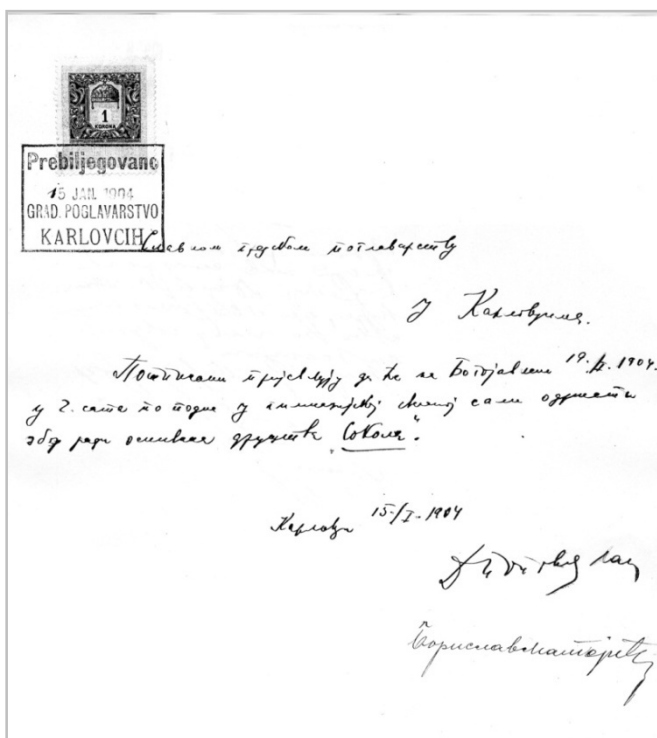 1
KORONA
Prebiljegovano
15 JAN. 1904
GRAD. POGLAVARSTVO
KARLOVCIH
Славном градском поглаварству
у Карловцима.
Потписани пријављују да ће на Богојављење 19./I. 1904.
у 2. сата по подне у гимназијској сали одржати
збор ради оснивања друштва „Сокола".
Карловци 15/I. 1904
Борислав